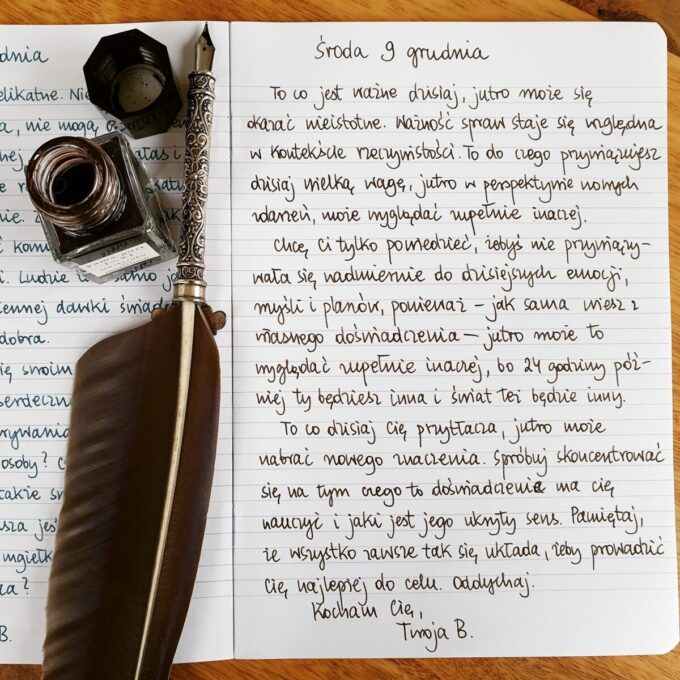 dnia
elikatne. Nie
a, nie mogą
nej
nie.
kom
i. Ludzie
samo ja
ennej dawki świad
dobra.
się swoim
serdeczn
rywania
osoby?
takie
sza jes
mgiełk
ra?
B.
Środa 9 grudnia
To co jest ważne dzisiaj, jutro może się
okazać nieistotne. Ważność spraw staje się względna
w kontekście rzeczywistości. To do czego przywiązujesz
dzisiaj wielką wagę, jutro w perspektywie nowych
zdarzeń, może wyglądać zupełnie inaczej.
Chcę Ci tylko powiedzieć, żebyś nie przywiązy-
wała się nadmiernie do dzisiejszych emocji,
myśli i planów, ponieważ – jak sama wiesz z
własnego doświadczenia – jutro może to
wyglądać zupełnie inaczej, bo 24 godziny póź-
niej ty będziesz inna i świat też będzie inny.
To co dzisiaj Cię przytłacza, jutro może
nabrać nowego znaczenia. Spróbuj skoncentrować
się na tym czego to doświadczenie ma cię
nauczyć i jaki jest jego ukryty sens. Pamiętaj,
że wszystko zawsze tak się układa, żeby prowadzić
Cię najlepiej do celu. Oddychaj.
Kocham Cię,
Twoja B.